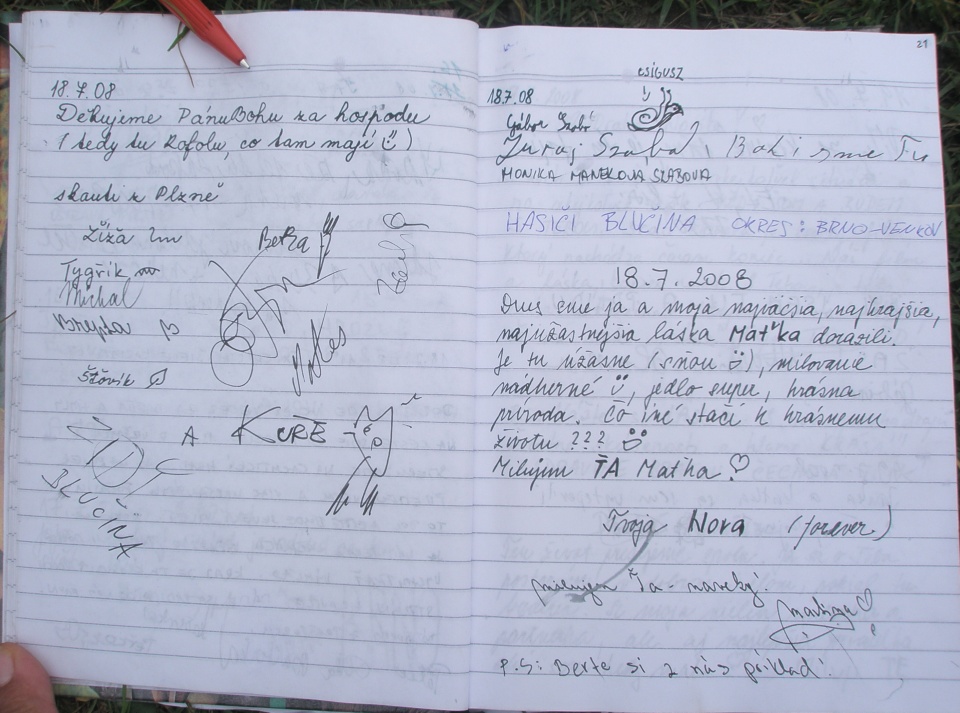 18.7.08
Děkujeme PánuBohu za hospodu
(tedy tu Kofolu, co tam mají)
skauti z Plzně
Žíža
Berča
Tygřík
Michal
Brepta
Šťovík
A KUŘE
BLUČINA
21
CSIGUSZ
18.7.08
Gábor Szabó
Juraj Szabó, Boli sme Tu
MONIKA MANEKOVA SZABOVA
HASIČI BLUČINA OKRES: BRNO-VENKOV
18.7.2008
Dnes sme ja a moja najväčšia, najkrajšia,
najúžastnejšia láska Maťka dorazili.
Je tu úžasne (sňou), milovanie
nádherné, jedlo super, krásna
príroda. Čo iné stačí k krásnemu
životu ???
Milujem ŤA Maťka
Tvoja Nora (forever)
milujem Ťa - naveky!
P.S: Berte si z nás príklad!